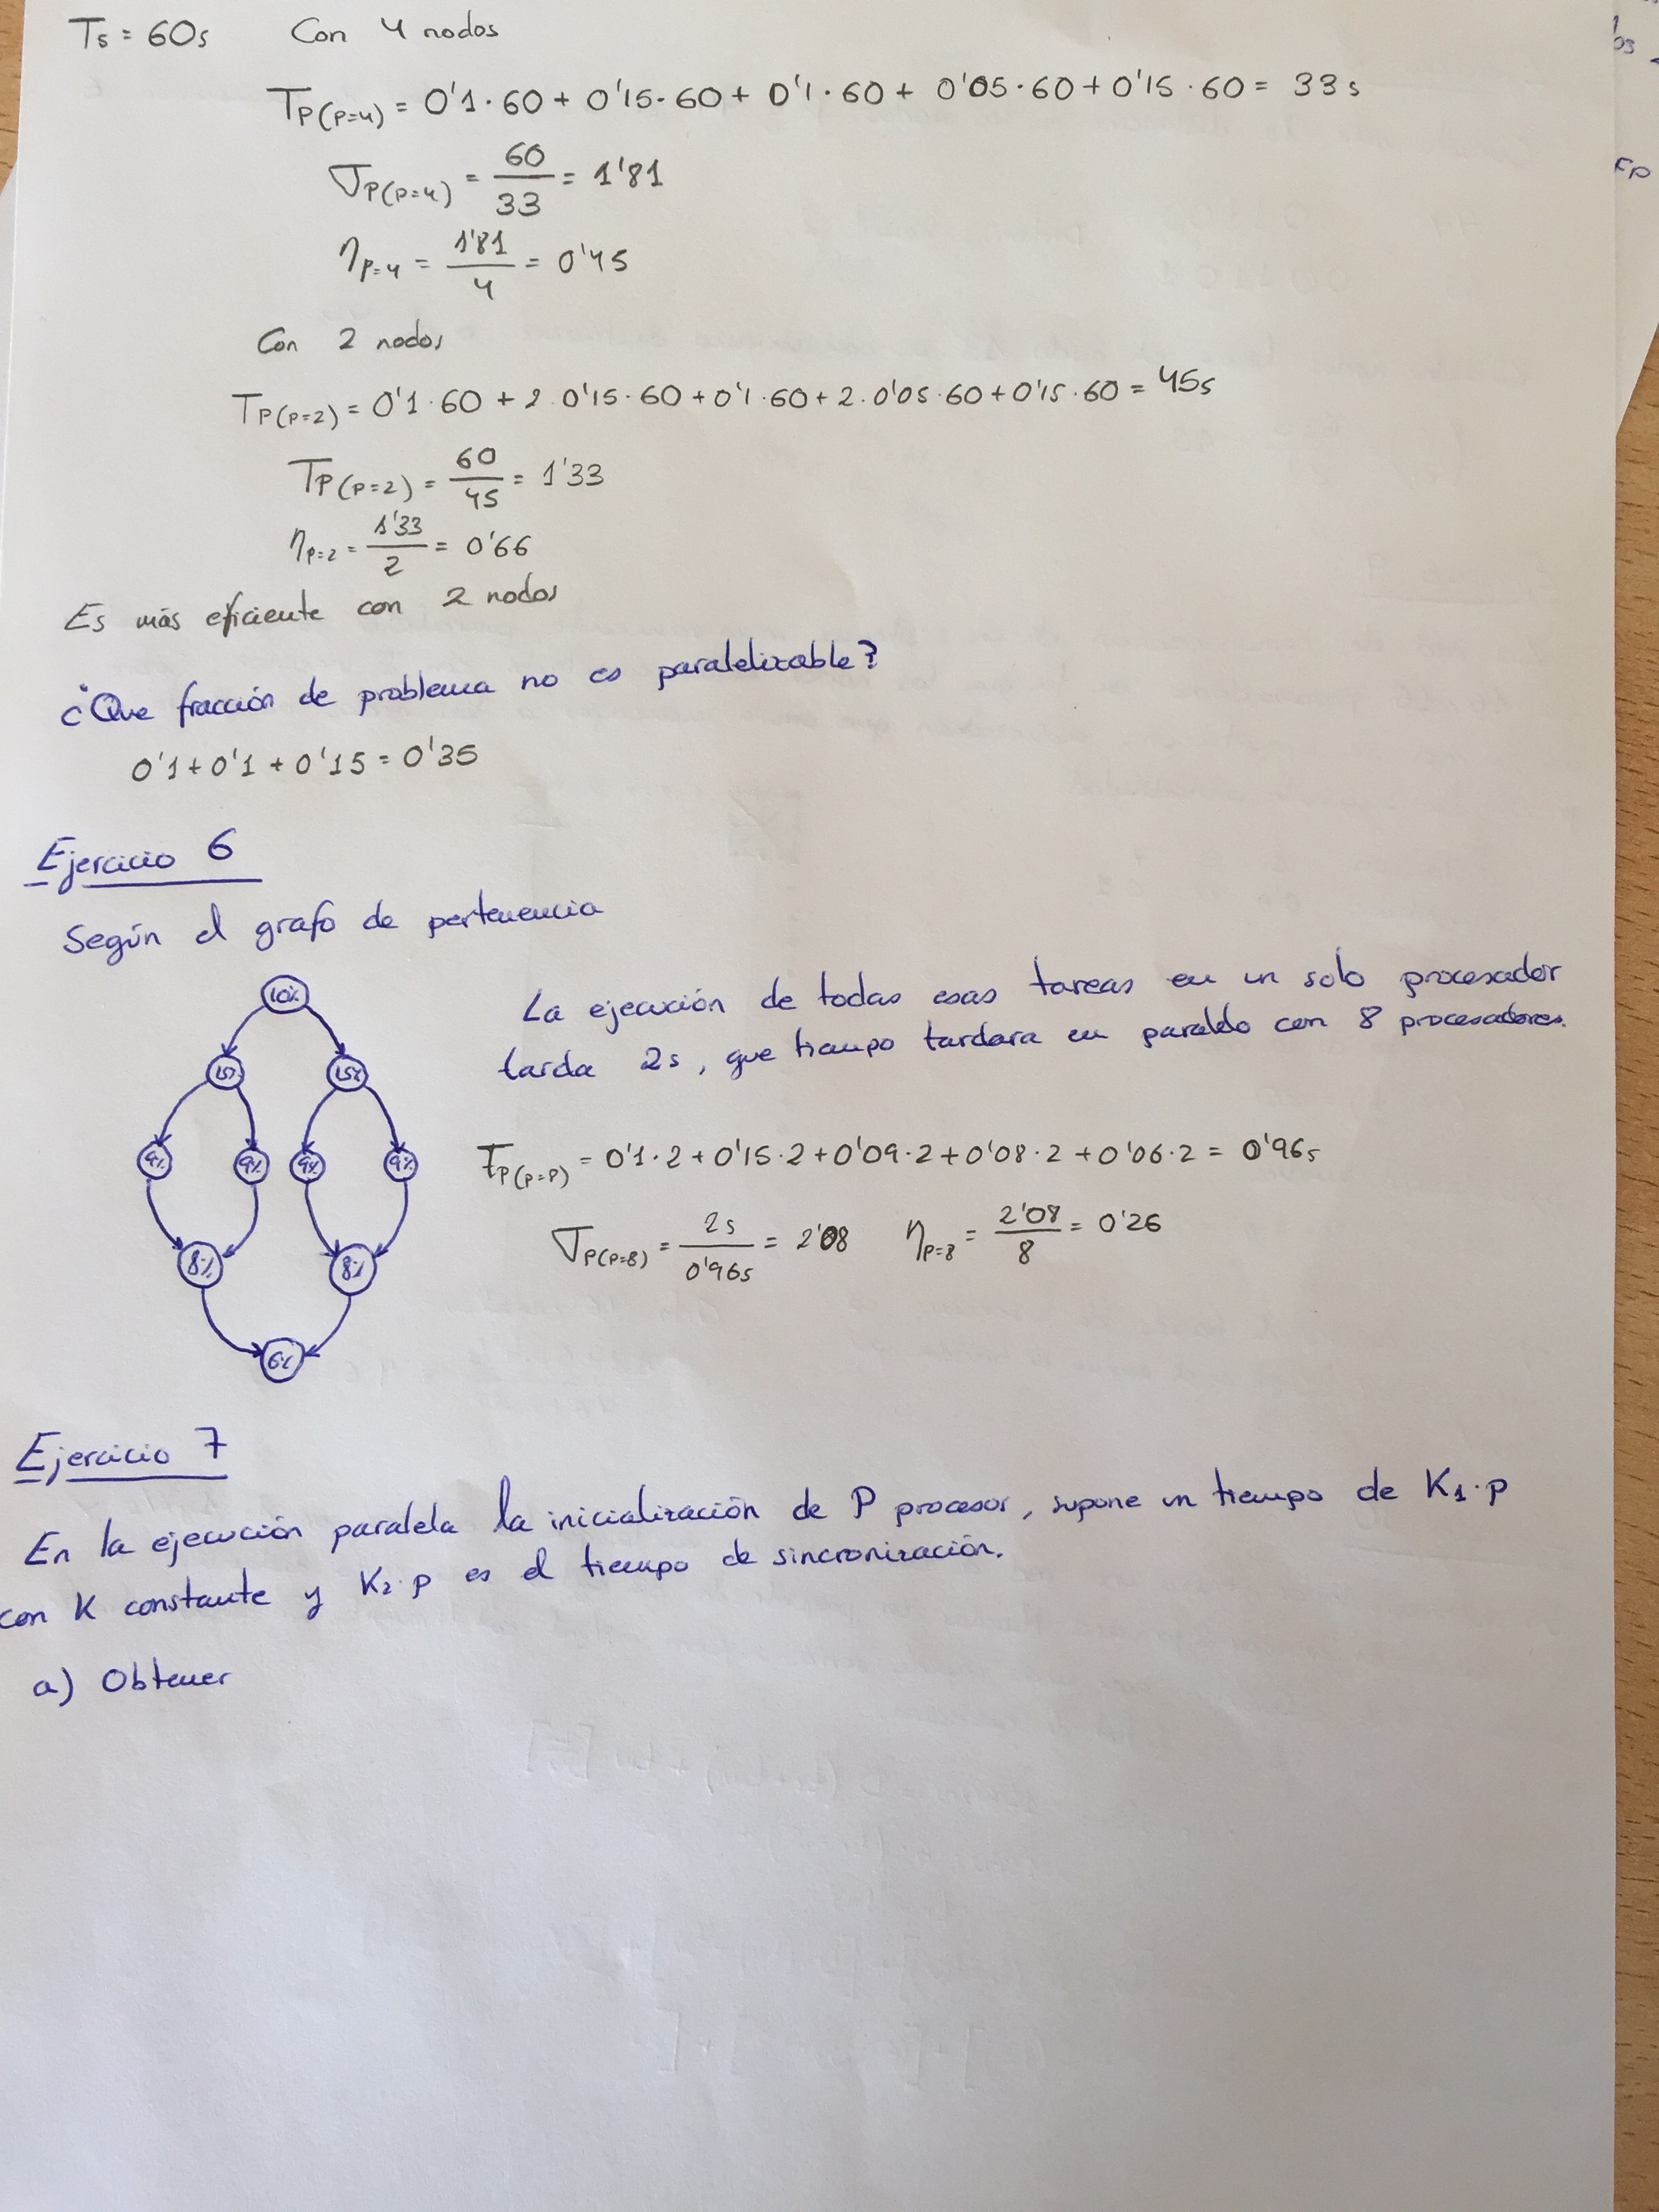 Ts = 60s Con 4 nodos
TP(P=4) = 0'1 · 60 + 0'15 · 60 + 0'1 · 60 + 0'05 · 60 + 0'15 · 60 = 33 s
σP(P=4) = 60/33 = 1'81
ηP=4 = 1'81/4 = 0'45
Con 2 nodos
TP(P=2) = 0'1 · 60 + 2 · 0'15 · 60 + 0'1 · 60 + 2 · 0'05 · 60 + 0'15 · 60 = 45s
TP(P=2) = 60/45 = 1'33
ηP=2 = 1'33/2 = 0'66
Es más eficiente con 2 nodos
¿Que fracción de problema no es paralelizable?
0'1 + 0'1 + 0'15 = 0'35
Ejercicio 6
Según el grafo de pertenencia
10%
La ejecución de todas esas tareas en un solo procesador
tarda 2s, que tiempo tardara en paralelo con 8 procesadores.
15% 15%
9% 9% 9% 9%
tP(P=P) = 0'1 · 2 + 0'15 · 2 + 0'09 · 2 + 0'08 · 2 + 0'06 · 2 = 0'96s
σP(P=8) = 2s/0'96s = 2'08 ηP=8 = 2'08/8 = 0'26
8% 8%
6%
Ejercicio 7
En la ejecución paralela la inicialización de P procesor, supone un tiempo de K1 · P
con K constante y K2 · P es el tiempo de sincronización.
a) Obtener